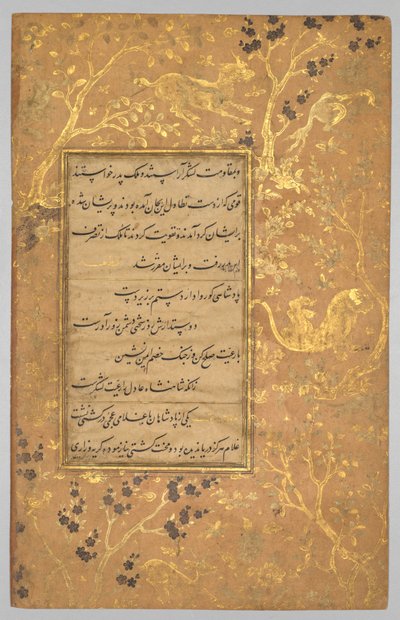 و بمقاومت لشکر آراستند و ملک پدر خواستند
قومی که از دست تطاول او بجان آمده بودند و پریشان شده
بر ایشان گرد آمدند و تقویت کردند تا ملک از تصرف
این بدر رفت و بر ایشان مقرر شد
پادشاهی کو روا دارد ستم بر زیردست
دوستدارش روز سختی دشمن زورآورست
با رعیت صلح کن وز جنگ خصم ایمن نشین
زانکه شاهنشاه عادل را رعیت لشکرست
یکی از پادشاهان با غلامی عجمی در کشتی نشست
غلام هرگز دریا ندیده بود و محنت کشتی نیازموده گریه و زاری